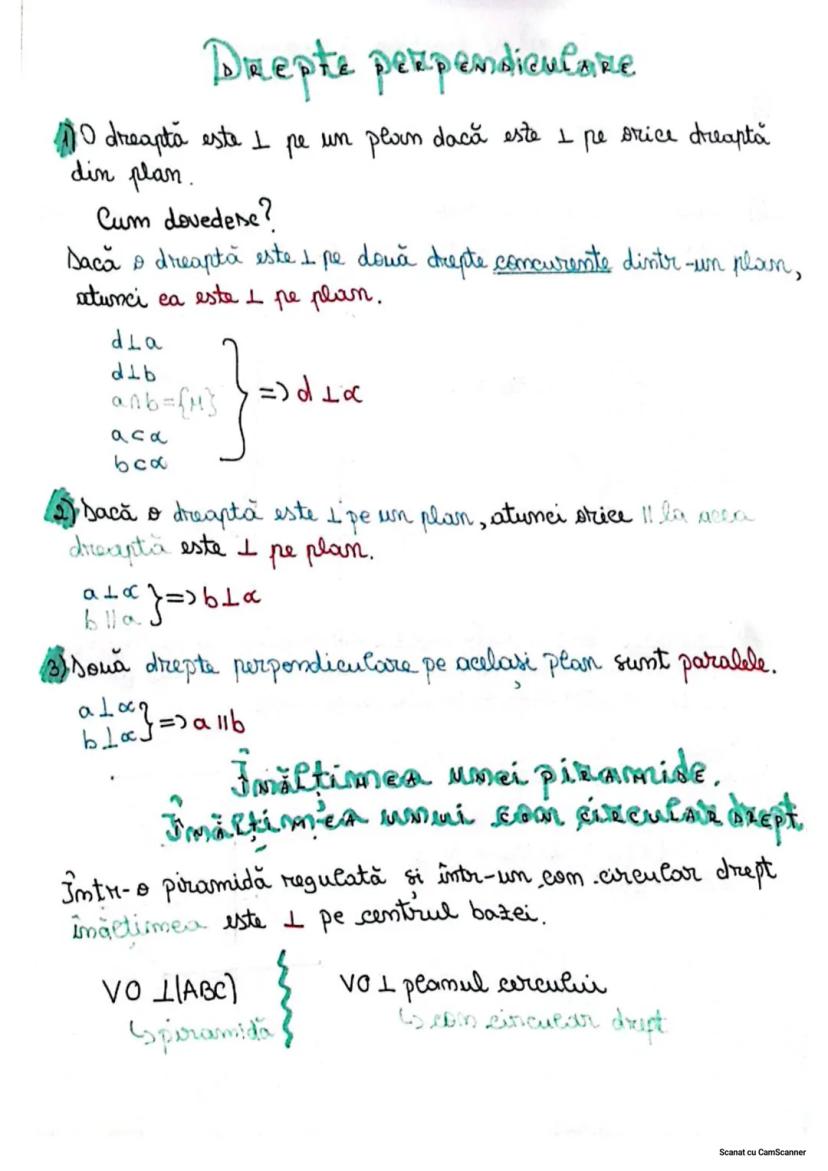 Drepte perpendiculare
1) O dreaptă este ⊥ pe un plan dacă este ⊥ pe orice dreaptă
din plan.
Cum dovedesc?
Dacă o dreaptă este ⊥ pe două drepte concurente dintr-un plan,
atunci ea este ⊥ pe plan.
d⊥a
d⊥b
a∩b={M}
a⊂α
b⊂α
=> d ⊥α
2) Dacă o dreaptă este ⊥ pe un plan, atunci orice || la acea
dreaptă este ⊥ pe plan.
a⊥α
b||a
} => b⊥α
3) Două drepte perpendiculare pe același plan sunt paralele.
a⊥α
b⊥α
} => a||b
Înălțimea unei piramide.
Înălțimea unui con circular drept.
Într-o piramidă regulată și într-un con circular drept
înălțimea este ⊥ pe centrul bazei.
VO ⊥(ABC)
↳piramidă
VO ⊥ planul cercului
↳con circular drept
Scanat cu CamScanner